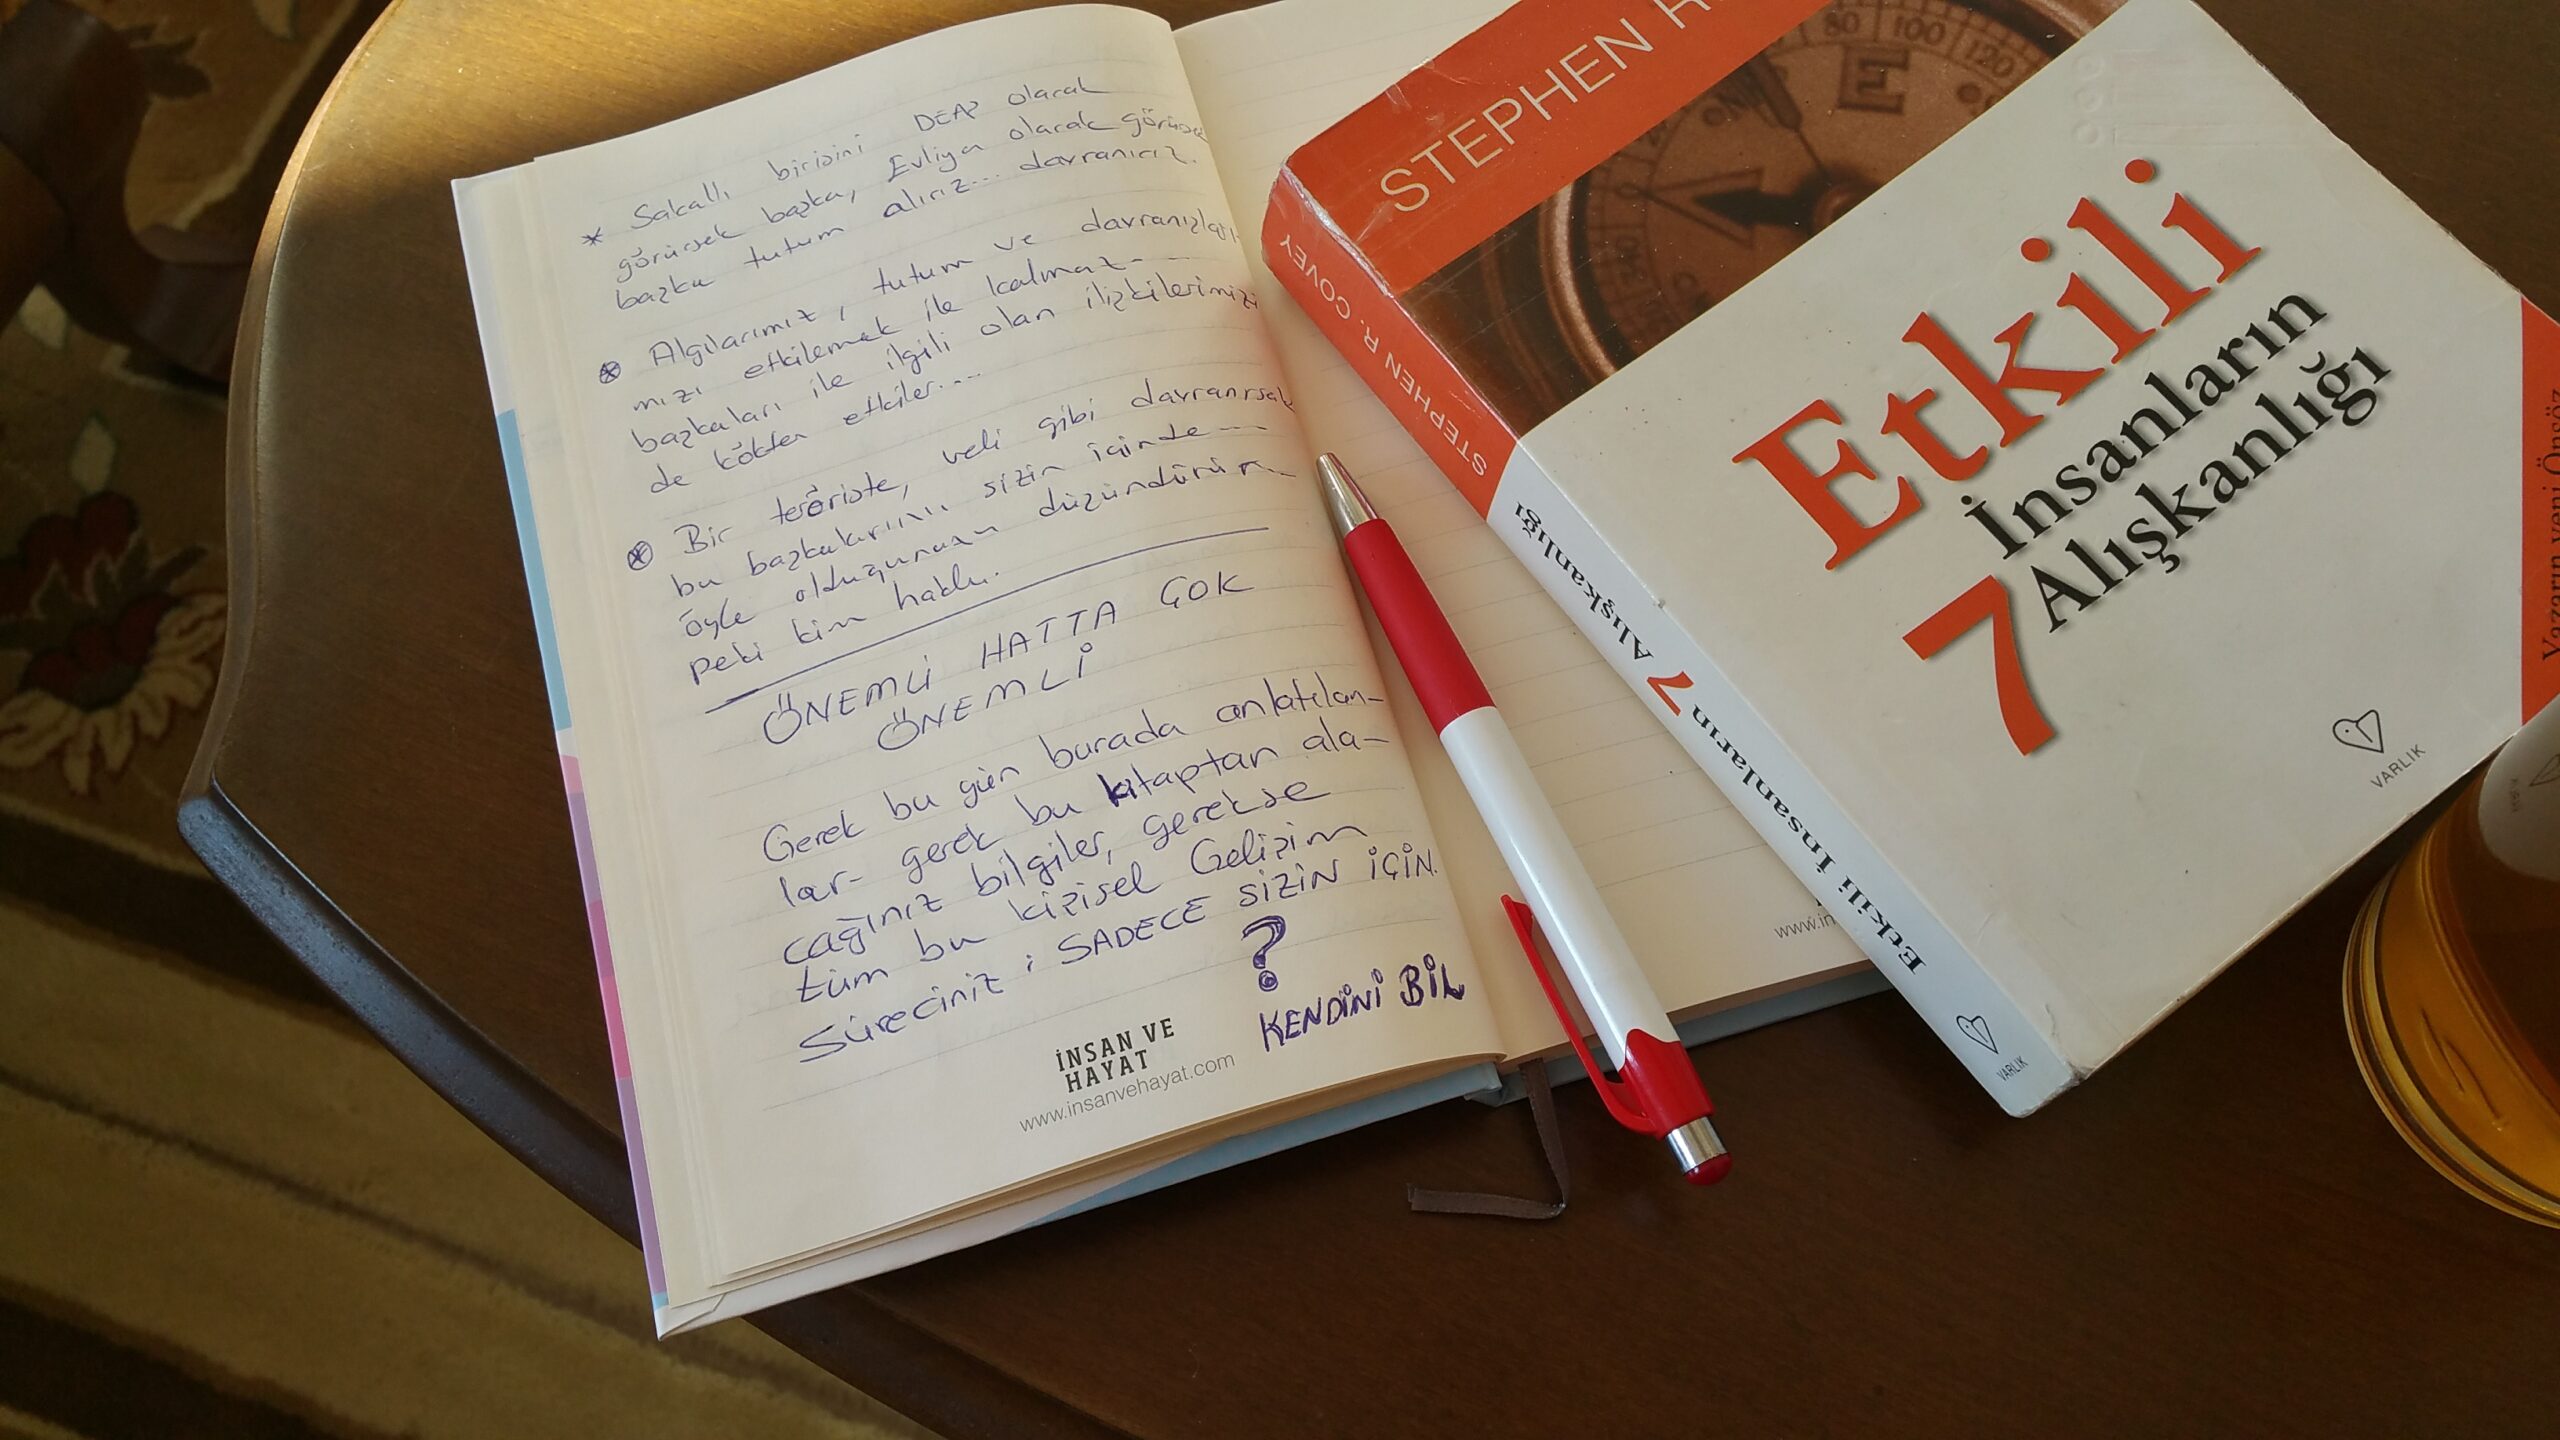 * Sakallı birisini DEAŞ olarak
görürsek başka, Evliya olarak görürsek
başka tutum alırız... davranırız.
* Algılarımız, tutum ve davranışları-
mızı etkilemek ile kalmaz- -
başkaları ile ilgili olan ilişkilerimizi
de kökten etkiler....
* Bir teröriste, veli gibi davranırsak
bu başkalarını sizin içinde ---
öyle olduğunuzu düşündürür...
peki kim haklı.
ÖNEMLİ HATTA ÇOK
ÖNEMLİ
Gerek bu gün burada anlatılan-
lar- gerek bu kitaptan ala-
cağınız bilgiler, gerekse
tüm bu kişisel Gelişim
Süreciniz ; SADECE SİZİN İÇİN.
?
KENDİNİ BİL
İNSAN VE
HAYAT
www.insanvehayat.com
www.in
STEPHEN R.
80 100 120
E
Etkili
İnsanların
7 Alışkanlığı
VARLIK
Yazarın yeni Önsöz
STEPHEN R. COVEY
Etkili İnsanların 7 Alışkanlığı
VARLIK